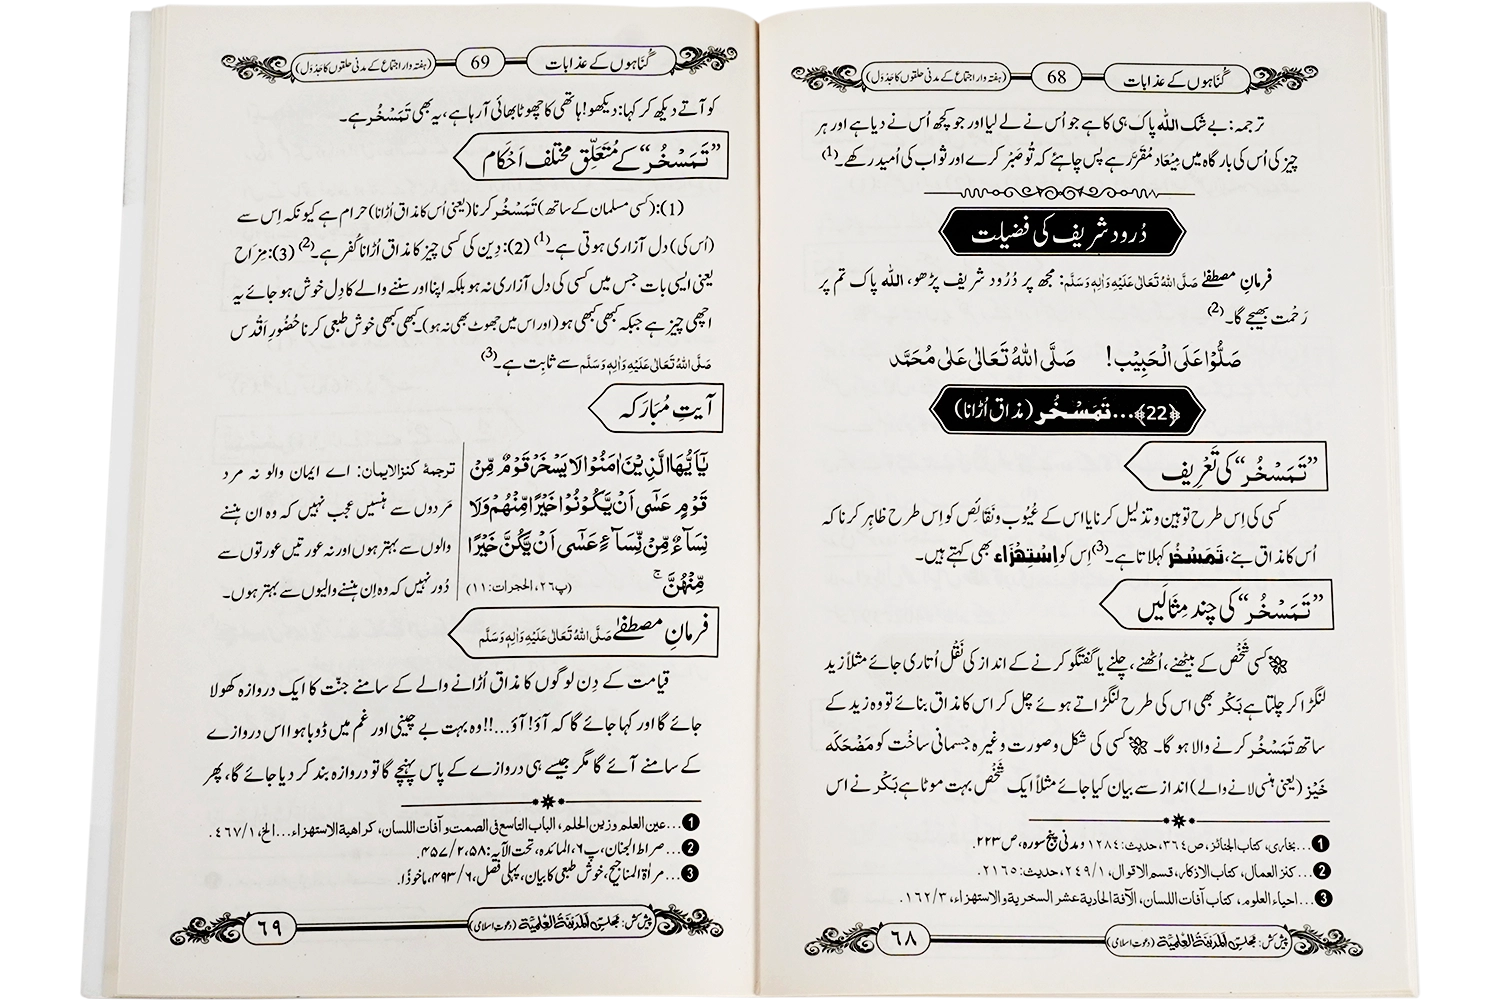 گناہوں کے عذابات
68
(ہفتہ وار اجتماع کے مدنی حلقوں کا جَدْوَل)
ترجمہ: بے شک اللہ پاک ہی کا ہے جو اُس نے لے لیا اور جو کچھ اُس نے دیا ہے اور ہر
چیز کی اُس کی بار گاہ میں مِیْعاد مُقَرَّر ہے پس چاہئے کہ تُو صَبْر کرے اور ثواب کی اُمید رکھے۔ (1)
دُرود شریف کی فضیلت
فرمانِ مصطفٰے صَلَّی اللہُ تَعَالٰی عَلَیْہِ وَاٰلِہٖ وَسَلَّم: مجھ پر دُرُود شریف پڑھو، اللہ پاک تم پر
رَحْمت بھیجے گا۔ (2)
صَلُّوْا عَلَی الْحَبِیْب! صَلَّی اللہُ تَعَالٰی عَلٰی مُحَمَّد
﴿22﴾...تَمَسْخُر (مذاق اُڑانا)
”تَمَسْخُر“ کی تَعْرِیف
کسی کی اِس طرح توہین و تذلیل کرنا یا اس کے عُیُوب و نَقائِص کو اِس طرح ظاہِر کرنا کہ
اُس کا مذاق بنے، تَمَسْخُر کہلاتا ہے۔ (3) اِس کو اِسْتِہْزَاء بھی کہتے ہیں۔
”تَمَسْخُر“ کی چند مِثالَیں
کسی شَخْص کے بیٹھنے، اُٹھنے، چلنے یا گفتگو کرنے کے انداز کی نَقْل اُتاری جائے مثلاً زید
لنگڑا کر چلتا ہے بَکْر بھی اس کی طرح لنگڑاتے ہوئے چل کر اس کا مذاق بنائے تو وہ زید کے
ساتھ تَمَسْخُر کرنے والا ہو گا۔ کسی کی شکل و صورت وغیرہ جسمانی ساخْت کو مَضْحَکَہ
خَیْز (یعنی ہنسی لانے والے) انداز سے بیان کیا جائے مثلاً ایک شَخْص بہت موٹا ہے بَکْر نے اس
1...بخاری، کتاب الجنائز، ص ۳۶۴، حدیث: ۱۲۸۴ و مدنی پنج سورہ، ص ۲۲۳.
2...کنز العمال، کتاب الاذکار، قسم الاقوال، ۱/۲۴۹، حدیث: ۲۱۶۵.
3...احیاء العلوم، کتاب آفات اللسان، الآفة الحادیة عشر السخریة والاستهزاء، ۳/۱۶۲.
پیش کش: مجلس اَلْمَدِیْنَةُ الْعِلْمِیَّة (دعوتِ اسلامی)
۶۸
گناہوں کے عذابات
69
(ہفتہ وار اجتماع کے مدنی حلقوں کا جَدْوَل)
کو آتے دیکھ کر کہا: دیکھو! ہاتھی کا چھوٹا بھائی آ رہا ہے، یہ بھی تَمَسْخُر ہے۔
”تَمَسْخُر“ کے مُتَعَلِّق مختلف اَحْکام
(1): (کسی مسلمان کے ساتھ) تَمَسْخُر کرنا (یعنی اُس کا مذاق اُڑانا) حرام ہے کیونکہ اِس سے
(اُس کی) دل آزاری ہوتی ہے۔ (1) (2): دِین کی کسی چیز کا مذاق اُڑانا کُفر ہے۔ (2) (3): مِزاح
یعنی ایسی بات جس میں کسی کی دل آزاری نہ ہو بلکہ اپنا اور سننے والے کا دِل خوش ہو جائے یہ
اچھی چیز ہے جبکہ کبھی کبھی ہو (اور اس میں جھوٹ بھی نہ ہو)۔ کبھی کبھی خوش طبعی کرنا حُضُورِ اَقْدس
صَلَّی اللہُ تَعَالٰی عَلَیْہِ وَاٰلِہٖ وَسَلَّم سے ثابِت ہے۔ (3)
آیتِ مُبَارَکہ
یٰۤاَیُّهَا الَّذِیْنَ اٰمَنُوْا لَا یَسْخَرْ قَوْمٌ مِّنْ
قَوْمٍ عَسٰۤى اَنْ یَّكُوْنُوْا خَیْرًا مِّنْهُمْ وَ لَا
نِسَآءٌ مِّنْ نِّسَآءٍ عَسٰۤى اَنْ یَّكُنَّ خَیْرًا
مِّنْهُنَّۚ (پ۲۶، الحجرات: ۱۱)
ترجمۂ کنز الایمان: اے ایمان والو نہ مرد
مَردوں سے ہنسیں عجب نہیں کہ وہ ان ہنسنے
والوں سے بہتر ہوں اور نہ عورتیں عورتوں سے
دُور نہیں کہ وہ اِن ہنسنے والیوں سے بہتر ہوں۔
فرمانِ مصطفٰے صَلَّی اللہُ تَعَالٰی عَلَیْہِ وَاٰلِہٖ وَسَلَّم
قیامت کے دِن لوگوں کا مذاق اُڑانے والے کے سامنے جنّت کا ایک دروازہ کھولا
جائے گا اور کہا جائے گا کہ آؤ! آؤ...!! وہ بہت بے چینی اور غم میں ڈوبا ہوا اس دروازے
کے سامنے آئے گا مگر جیسے ہی دروازے کے پاس پہنچے گا تو دروازہ بند کر دیا جائے گا، پھر
1...عین العلم و زین الحلم، الباب التاسع فی الصمت و آفات اللسان، کراهیة الاستهزاء...الخ، ۱/۴۶۷.
2...صراط الجنان، پ۶، المائدہ، تحت الآیہ: ۵۸، ۲/۴۵۷.
3...مراٰة المناجیح، خوش طبعی کا بیان، پہلی فصل، ۶/۴۹۳، ماخوذًا.
پیش کش: مجلس اَلْمَدِیْنَةُ الْعِلْمِیَّة (دعوتِ اسلامی)
۶۹